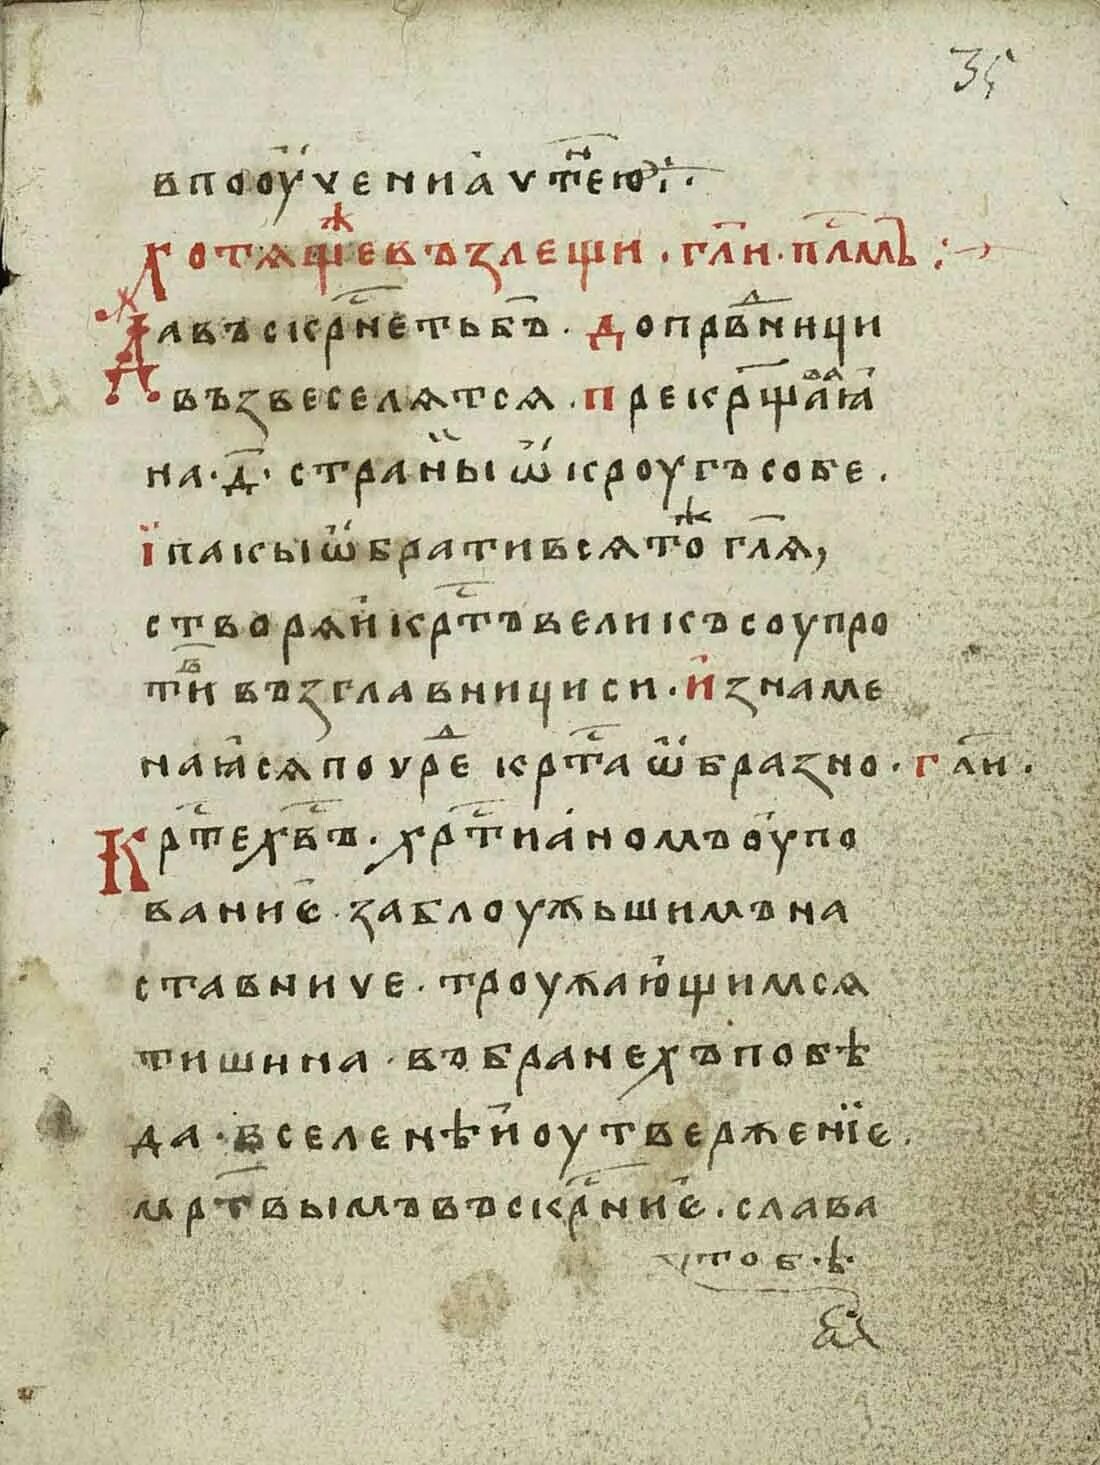 35
впооучениа ѵт҃нею҃ :·
Хотѧщ҃ж евъзлещи · гл҃и · пл҃мъ :~
Давъскрн҃етьб҃ъ · допрв҃дници
възвеселѧтсѧ · прекрщ҃аваꙗ
на · д҃ · страны ѡкроугъсобе .
їпакы ѡбративсѧ то҃ж гл҃ѧ,
створѧи крт҃ъ великъ соупро
ти҃в възглавници си · и знаме
наꙗсѧ почре҃д крт҃а ѡбразно · гл҃и .
Крт҃е хв҃ъ · хрт҃ианомъ оупо
вание · заблоужьшимъ на
ставниче · троужающимсѧ
тишина · въбранехъ побѣ
да · вселенѣи оутвержение .
мрт҃вымъ въскрн҃ие · слава
тобѣ ·